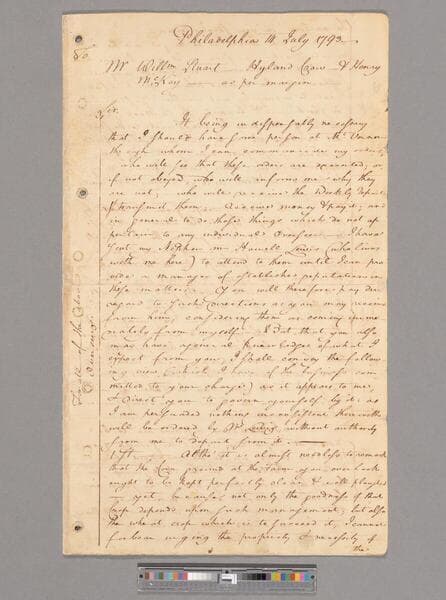 Philadelphia 14 July 1793
To
Mr Willm Stuart — Hyland Crow — & Henry
McKoy — as per margin
Sir,
It being indispensably necessary
that I should have some person at Mt. Vernon
through whom I can communicate my orders;
who will see that these orders are executed, or
if not obeyed, who will inform me why they
are not; who will receive the Weekly reports
& transmit them; Receive money & pay it; and
in general to do those things which do not ap
pertain to any individual Overseer — I have
sent my Nephew Mr Howell Lewis (who lives
with me here) to attend to them until I can pro
vide a manager of established reputation in
these matters. You will therefore pay due
regard to such directions as you may receive
from him, considering them as coming imme
diately from myself. But that you also
may have a general knowledge of what I
expect from you, I shall convey the follow
ing view (which I have of the business com
mitted to your charge) as it appears to me;
& direct you to govern yourself by it: as
I am persuaded nothing inconsistent therewith
will be ordered by Mr Lewis, without authority
from me to depart from it. —
1st. Altho' it is almost needless to remark
that the Corn ground at the Farm you overlook
ought to be kept perfectly clean & well ploughed
— yet, because not only the goodness of that
Crop depends upon such management, but also
the wheat crop which is to succeed it, I cannot
forbear urging the propriety & necessity of
the
To all of the
Overseers